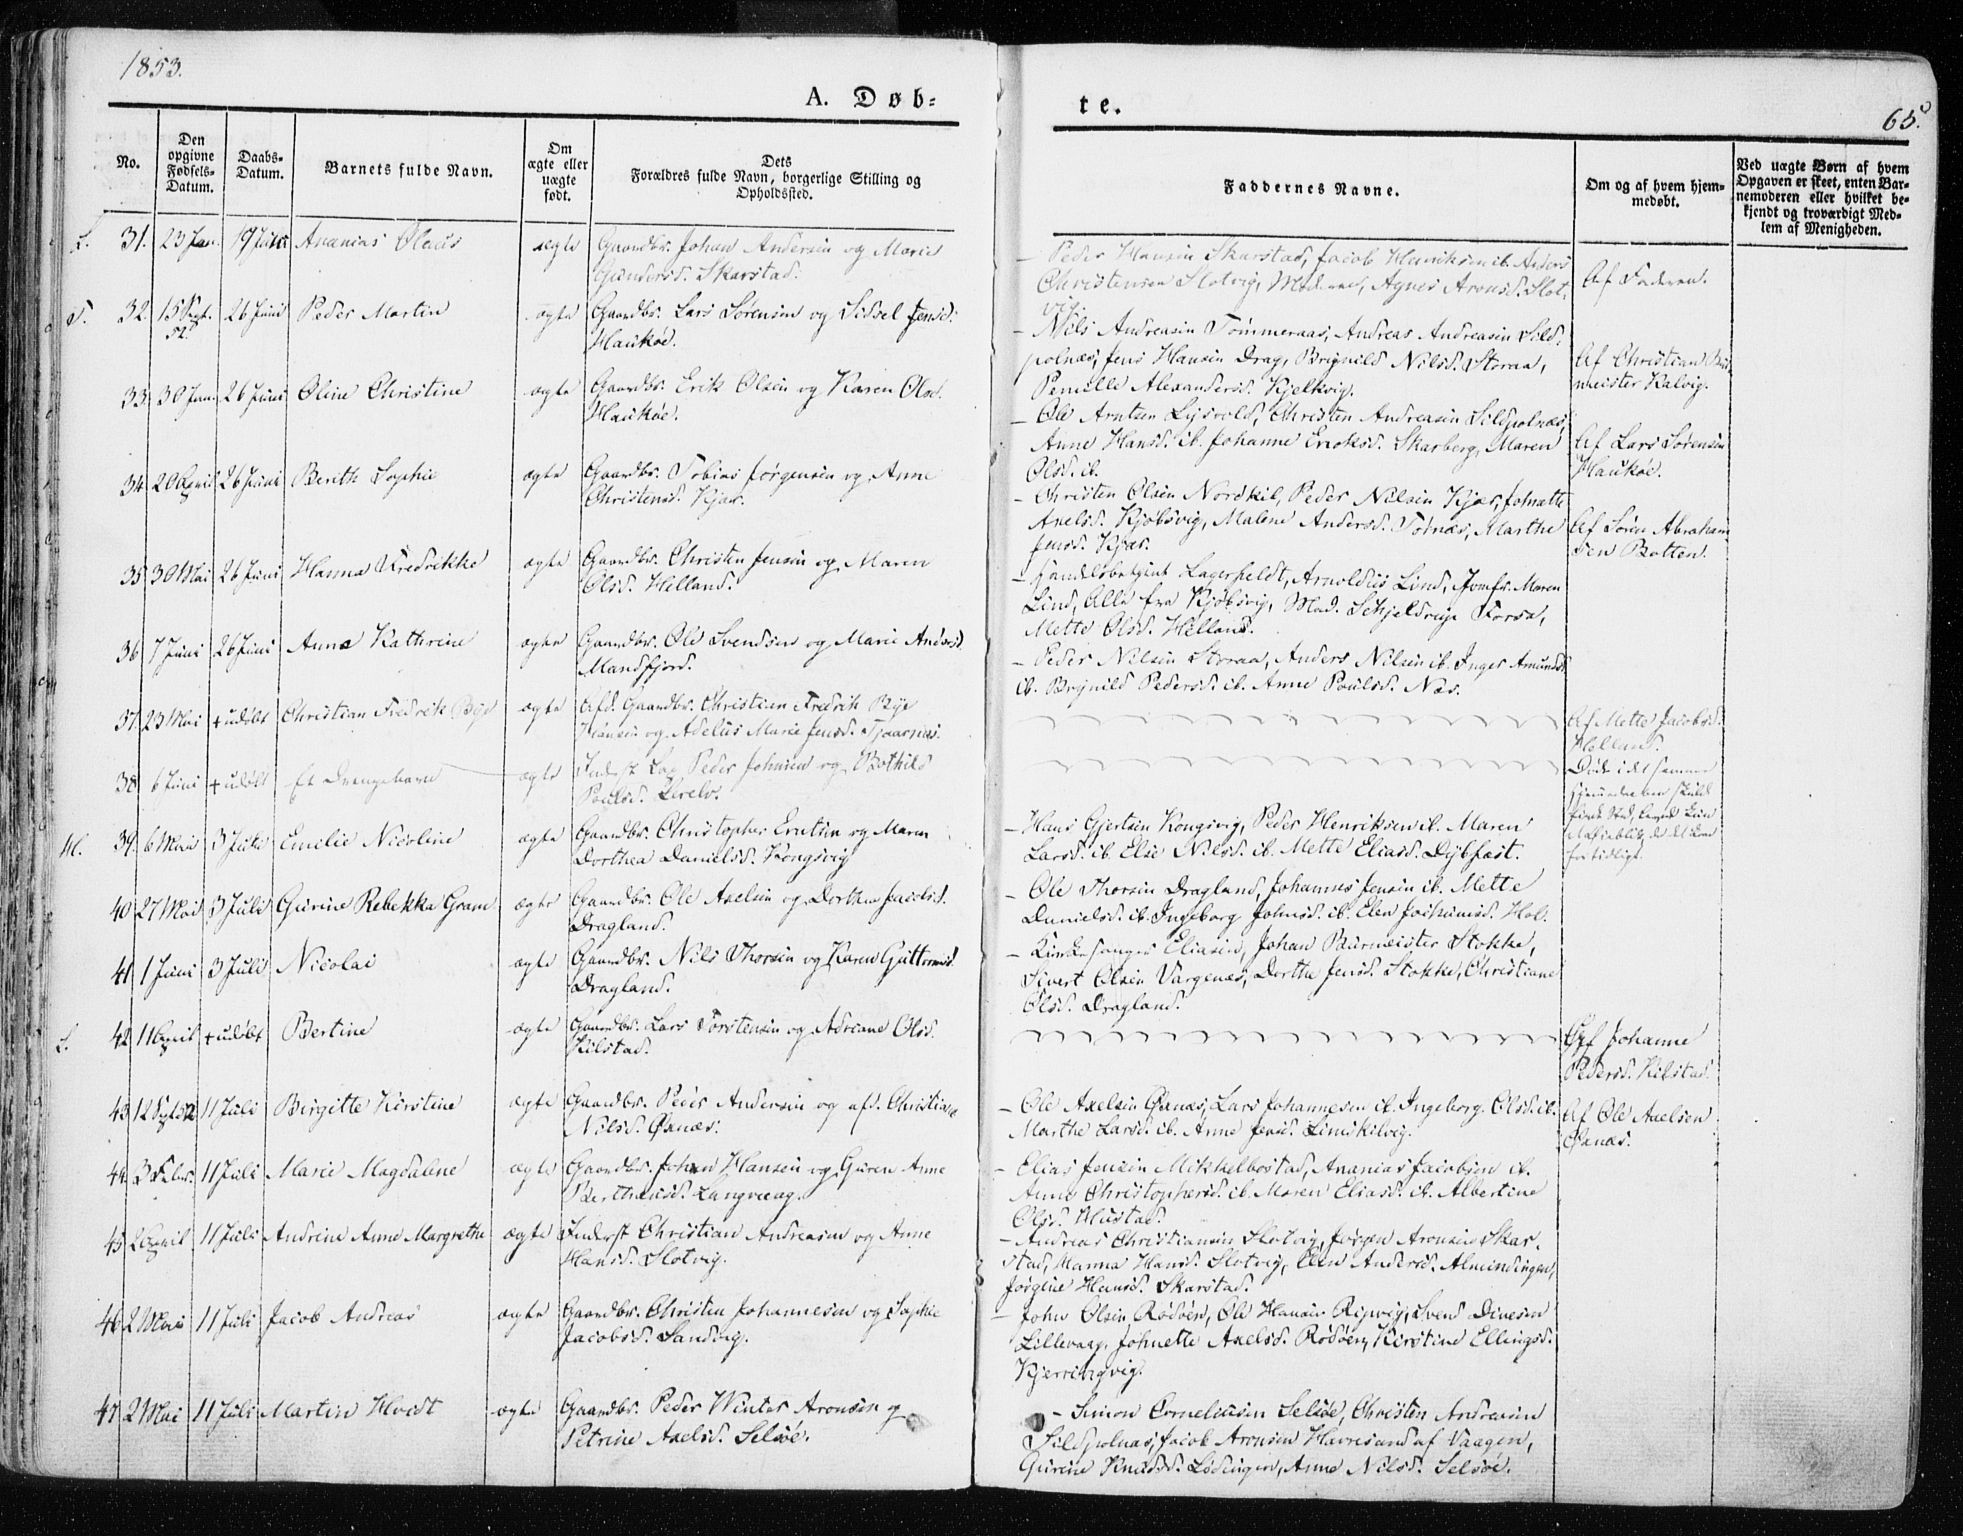 1853.
A. Døb-
te.
65.
No.
Den opgivne Fødsels-Datum.
Daabs-Datum.
Barnets fulde Navn.
Om ægte eller uægte født.
Dets
Forældres fulde Navn, borgerlige Stilling og
Opholdssted.
Faddernes Navne.
Om og af hvem hjem-
medøbt.
Ved uægte Børn af hvem
Opgaven er skeet, enten Bar-
nemoderen eller hvilket be-
kjendt og troværdigt Med-
lem af Menigheden.
L. 31. 23 Jan. 19 Juni Ananias Olaus ægte Gaardbr. Johan Andersen og Marie
Gundersd. Skarstad.
– Peder Hansen Skarstad, Jacob Henriksen ib. Anders
Christensen Slotvig, Moderen, Agnes Aronsd. Slot-
vig.
Af Faderen.
T. 32. 15 Sept. 52. 26 Juni Peder Martin ægte Gaardbr. Lars Sørensen og Sidsel Jensd.
Haukøe.
– Nils Andreasen Tømmeraas, Andreas Andreasen Sild-
polnæs, Jens Hansen Drag, Brynild Nilsd. Storaa,
Pernille Alexandersd. Kjelkvig.
Af Christian Bur
meister Kalvig.
33. 30 Jan. 26 Juni Oline Christine ægte Gaardbr. Erik Olsen og Karen Olsd.
Haukøe.
– Ole Arntsen Lysvold, Christen Andreasen Sildpolnæs,
Anne Hansd. ib. Johanne Eriksd. Skarberg, Maren
Olsd. ib.
Af Lars Sørensen
Haukøe.
34. 20 April 26 Juni Berith Sophie ægte Gaardbr. Tobias Jørgensen og Anne
Christensd. Kjær.
– Christen Olsen Nordkil, Peder Nilsen Kjær, Johnette
Axelsd. Kjøbsvig, Malene Andersd. Tofnæs, Marthe
Jensd. Kjær.
Af Søren Abraham
sen Botten.
35. 30 Mai 26 Juni Hanna Fredrikke ægte Gaardbr. Christen Jensen og Maren
Olsd. Helland.
– Handelsbetjent Lagerfeldt, Arnoldus Lind, Jomfr. Maren
Lind, Alle fra Kjøbsvig, Mad. Schjeldrup Forsa,
Mette Olsd. Helland.
36. 7 Juni 26 Juni Anna Kathrine ægte Gaardbr. Ole Svendsen og Marie Andersd.
Mandfjord.
– Peder Nilsen Storaa, Anders Nilsen ib. Inger Amundsd.
ib. Brynild Pedersd. ib. Anne Poulsd. Næs.
37. 23 Mai + udøbt Christian Fredrik Bye ægte Afd. Gaardbr. Christian Fredrik Bye
Hansen og Adelus Marie Jensd. Tjaarnæs.
Af Mette Jacobsd.
Helland.
38. 6 Juni + udøbt Et Drengebarn ægte Inderst Lap Peder Johnsen og Bothild
Poulsd.
Døde i det samme
39. 6 Mai 3 Juli Emilie Nicoline ægte Gaardbr. Christopher Erntsen og Maren
Dorthea Danielsd. Kongsvig
– Hans Gjertsen Kongsvig, Peder Henriksen ib. Maren
Larsd. ib. Else Nilsd. ib. Mette Eliasd. Dybfæst.
40. 27 Mai 3 Juli Gurine Rebekka Gram ægte Gaardbr. Ole Axelsen og Dorthea Jacobsd.
Dragland.
– Ole Thorsen Dragland, Johannes Jensen ib. Mette
Danielsd. ib. Ingeborg Johnsd. ib. Elen Jochumsd. Hol.
41. 1 Juni 3 Juli Nicolai ægte Gaardbr. Nils Thorsen og Karen Guttormsd.
Dragland.
– Kirkesanger Eliasen, Johan Burmeister Stokke,
Sivert Olsen Vargenæs, Dorthe Jensd. Stokke, Christiane
Olsd. Dragland.
L. 42. 11 April + udøbt Bertine ægte Gaardbr. Lars Torstensen og Adriane Olsd.
Kilstad.
Af Johanne
Pedersd. Kilstad.
43. 12 Sept 52 11 Juli Birgitte Kirstine ægte Gaardbr. Peder Andersen og afd. Christiane
Nilsd. Øxnæs.
– Ole Axelsen Øxnæs, Lars Johannesen ib. Ingeborg Olsd. ib.
Marthe Larsd. ib. Anne Jensd. Limskilvig.
Af Ole Axelsen
Øxnæs.
44. 3 Febr. 11 Juli Marie Magdalene ægte Gaardbr. Johan Hansen og Guren Anne
Bertheusd. Langvaag.
– Elias Jensen Mikkelbostad, Ananias Jacobsen ib.
Anne Christophersd. ib. Maren Eliasd. ib. Albertine
Olsd. Hustad.
45. 2 April 11 Juli Andrine Anne Margrethe ægte Inderst Christian Andreasen og Anne
Hansd. Slotvig.
– Andreas Christiansen Slotvig, Jørgen Aronsen Skar-
stad, Hanna Hansd. Slotvig, Elen Andersd. Almindingen,
Jørgine Hansd. Skarstad.
46. 2 Mai 11 Juli Jacob Andreas ægte Gaardbr. Christen Johannesen og Sophie
Jacobsd. Sandvig.
– John Olsen Rødøen, Ole Hansen Repvig, Svend Dinesen
Lillevaag, Johnette Axelsd. Rødøen, Kirstine Ellingsd.
Kjerringvig.
47. 2 Mai 11 Juli Martin Hvidt ægte Gaardbr. Peder Winter Aronsen og
Petrine Axelsd. Selsøe.
– Simon Corneliusen Selsøe, Christen Andreasen
Sildpolnæs, Jacob Aronsen Havresand af Vaagen,
Gurine Knudsd. Lødingen, Anne Nilsd. Selsøe.